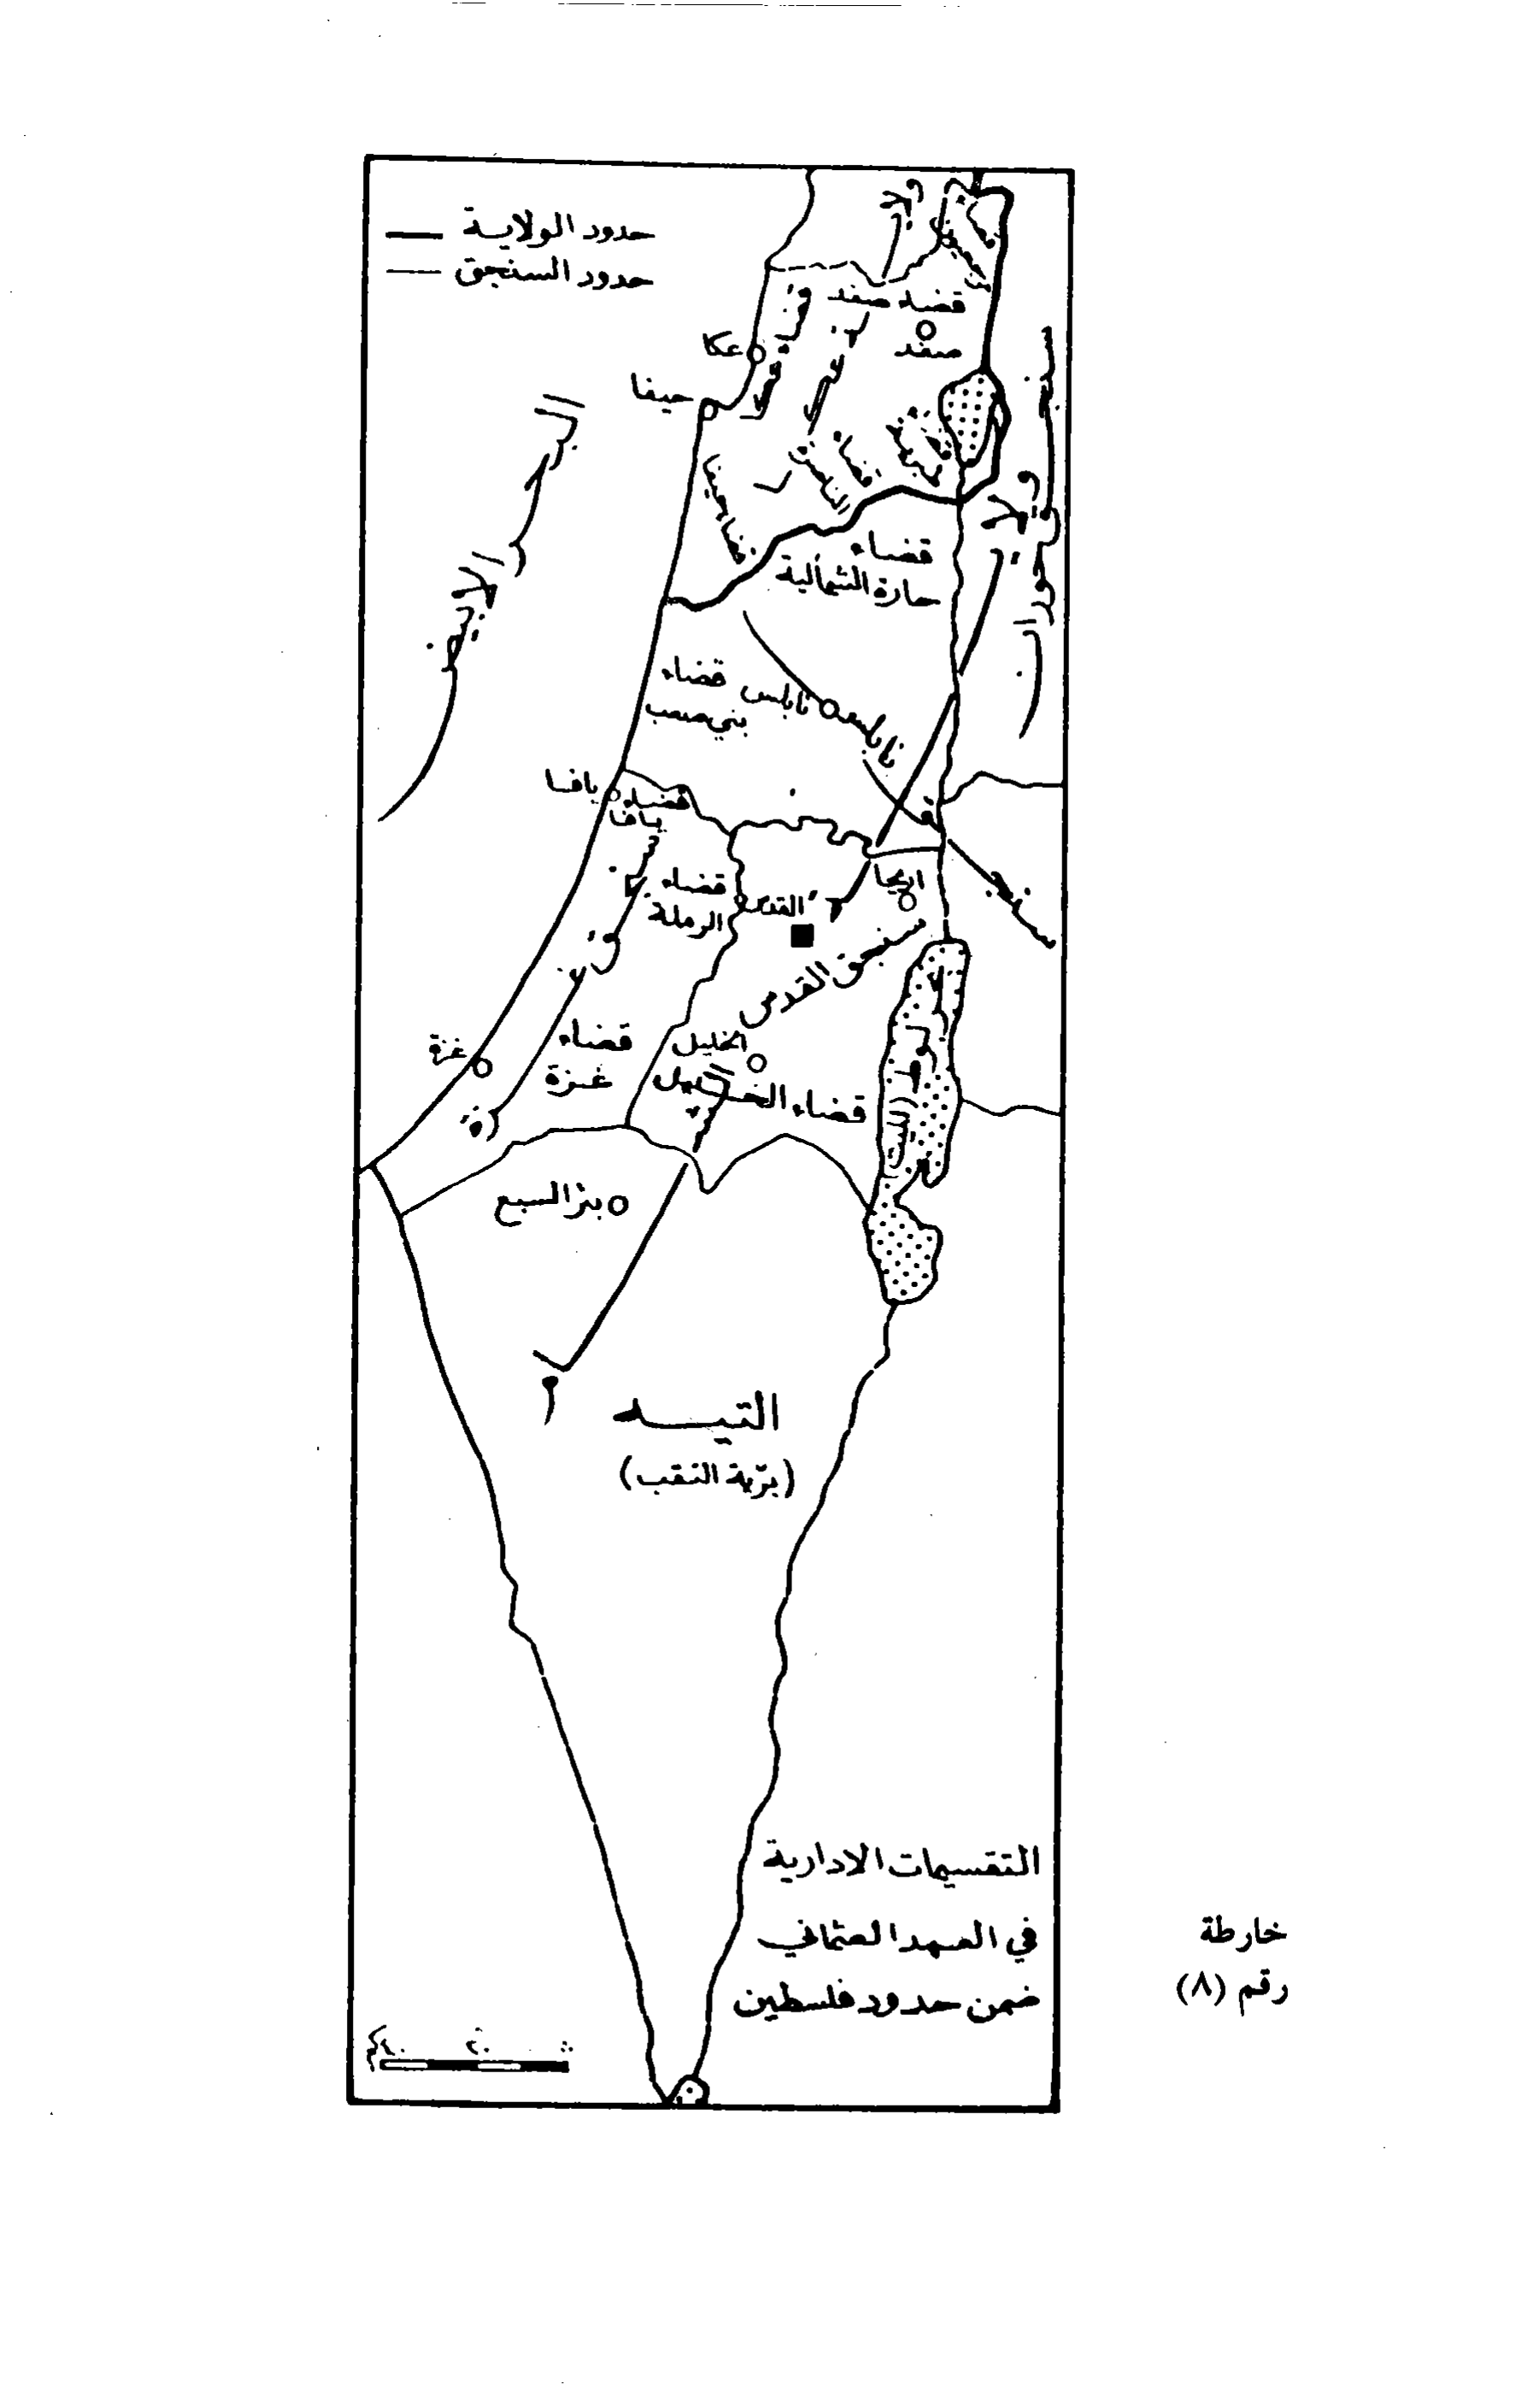 حدود الولاية
حدود السنجق
قضاء صفد
صفد
عكا
حيفا
قضاء
حارة الشمالية
قضاء
بني صعب
نابلس
يافا
قضاء
يافا
قضاء
الرملة
القدس
اريحا
سنجق القدس
الخليل
قضاء الخليل
غزة
قضاء
غزة
بئر السبع
التيه
(بريّة النقب)
التقسيمات الادارية
في العهد العثماني
ضمن حدود فلسطين
خارطة
رقم (٨)